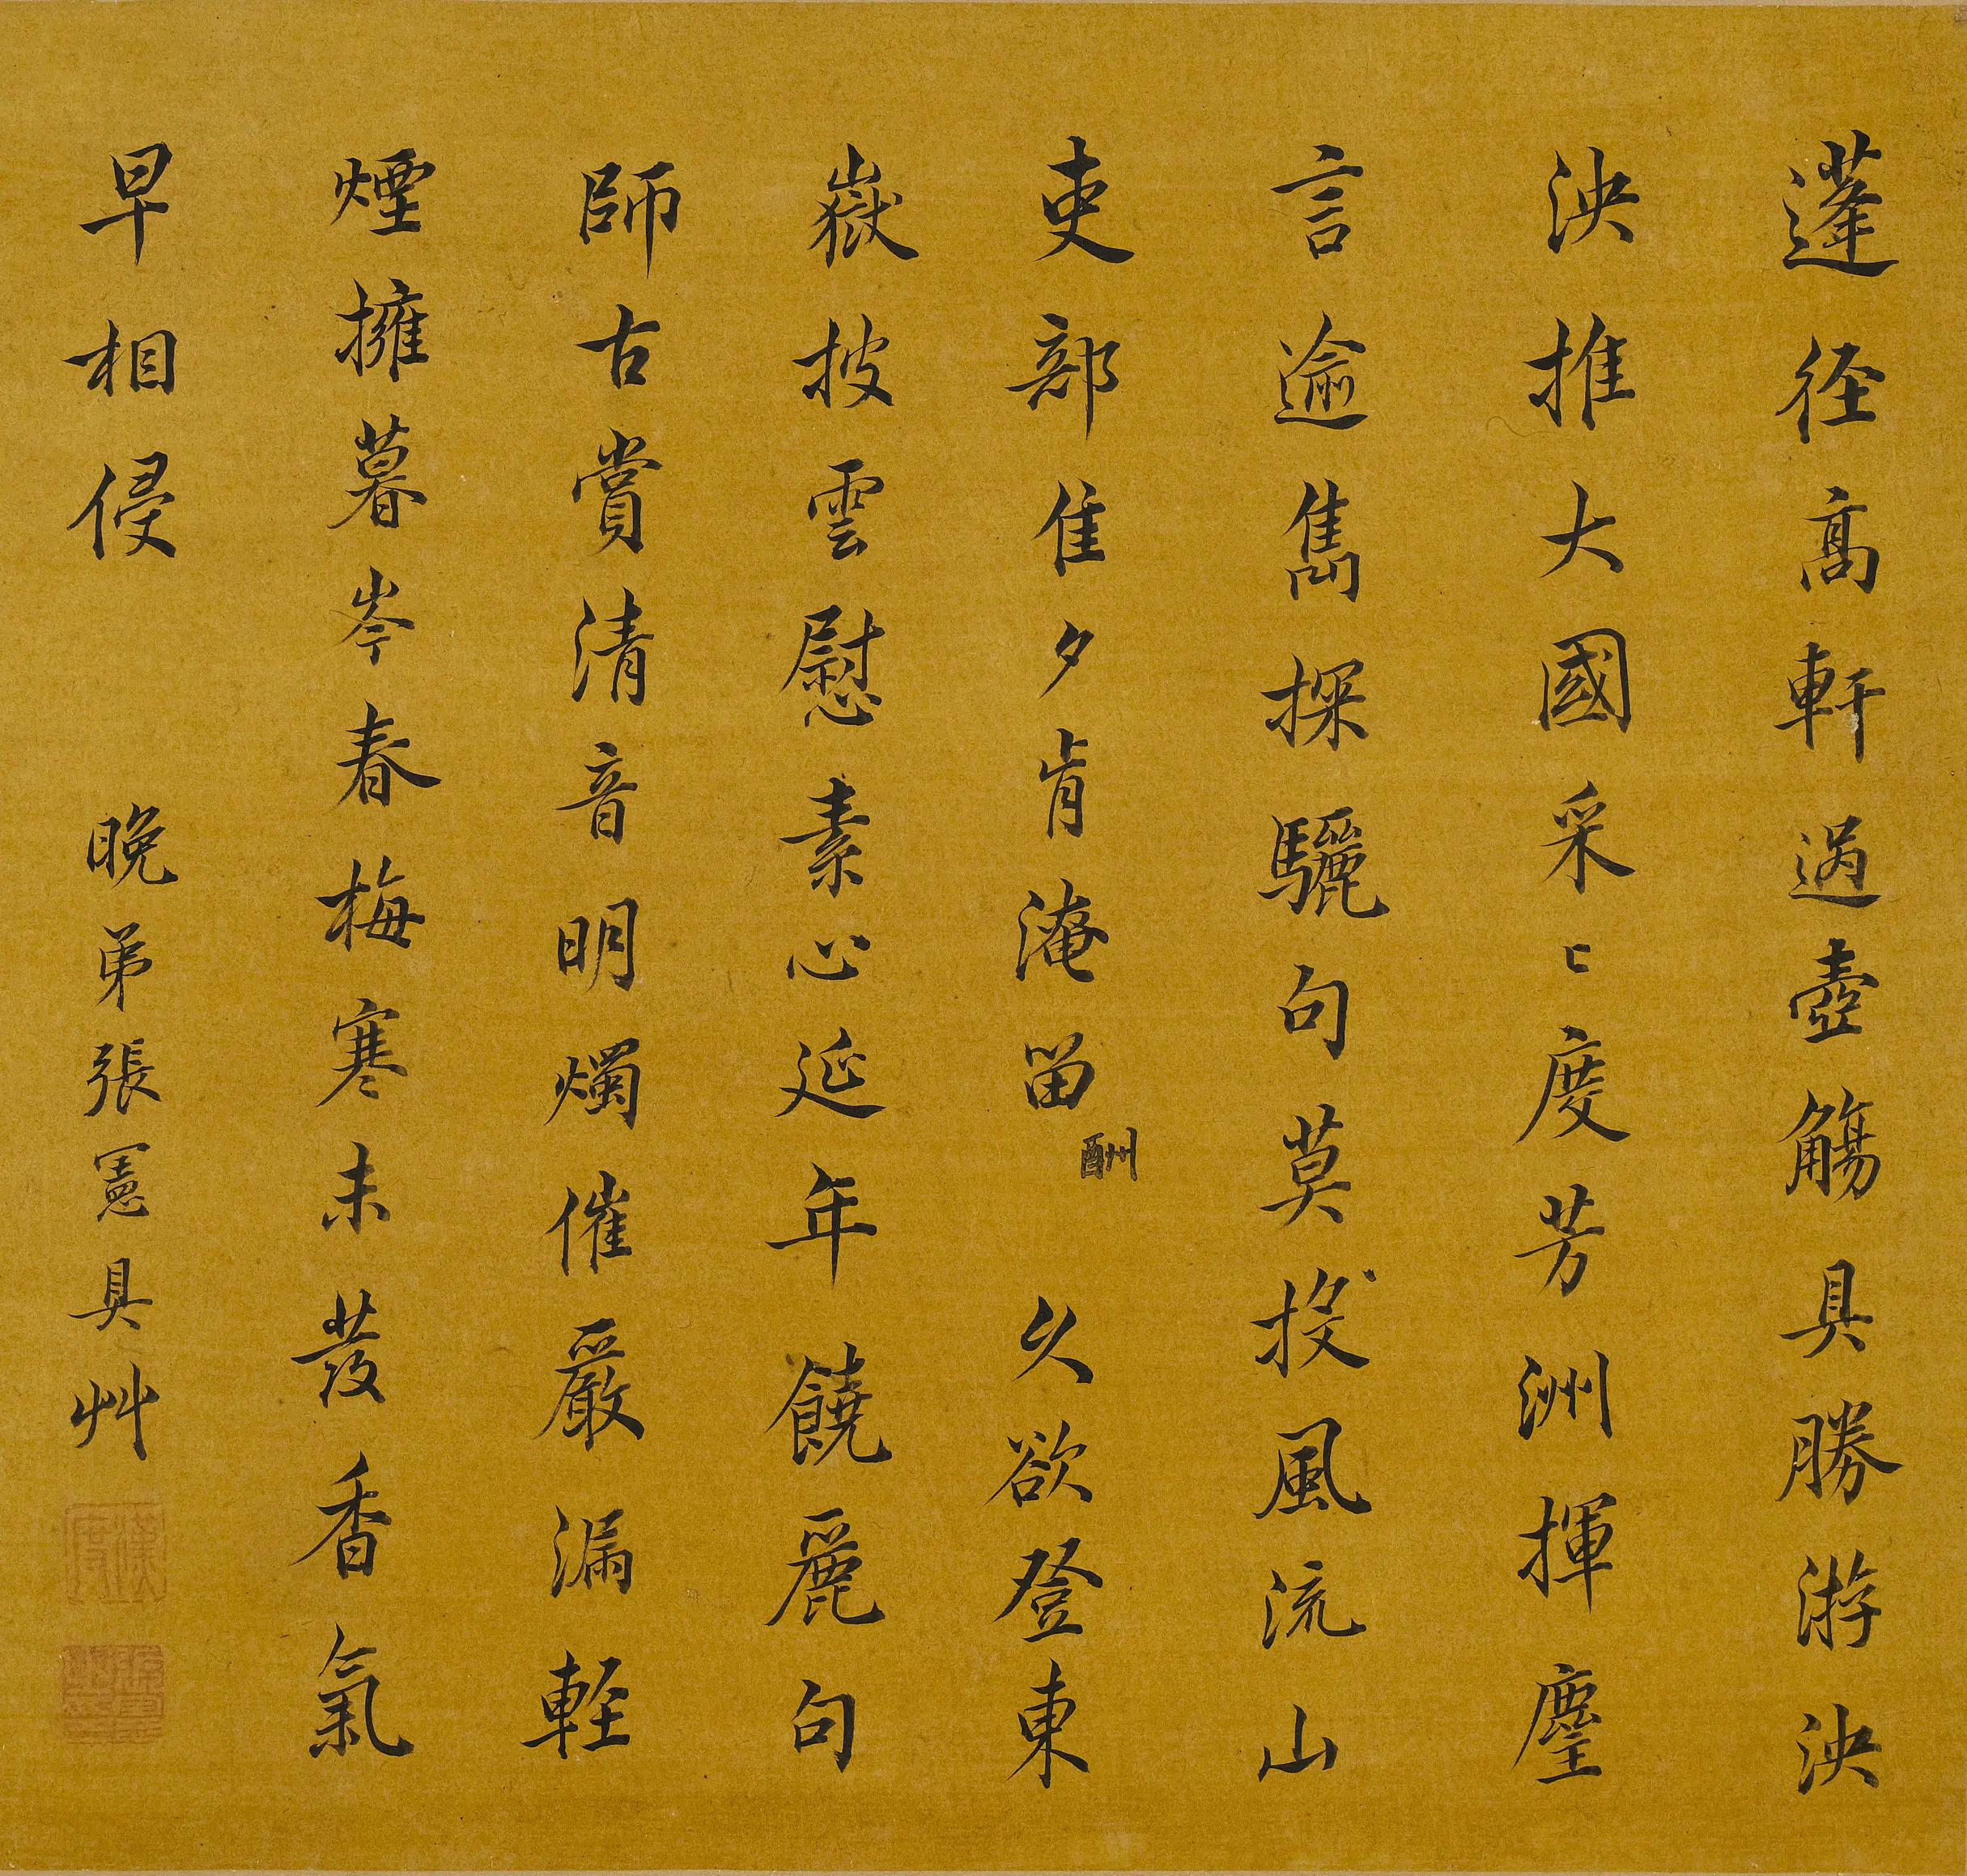 蓬径高軒過壺觴具勝游泱
泱推大國采〻度芳洲揮麈
言逾雋探驪句莫投風流山
吏部隹夕肯淹留 酬 久欲登東
嶽披雲慰素心延年饒麗句
師古賞清音明燭催嚴漏軽
煙擁暮岑春梅寒未發香氣
早相侵 晚弟張憲具艸